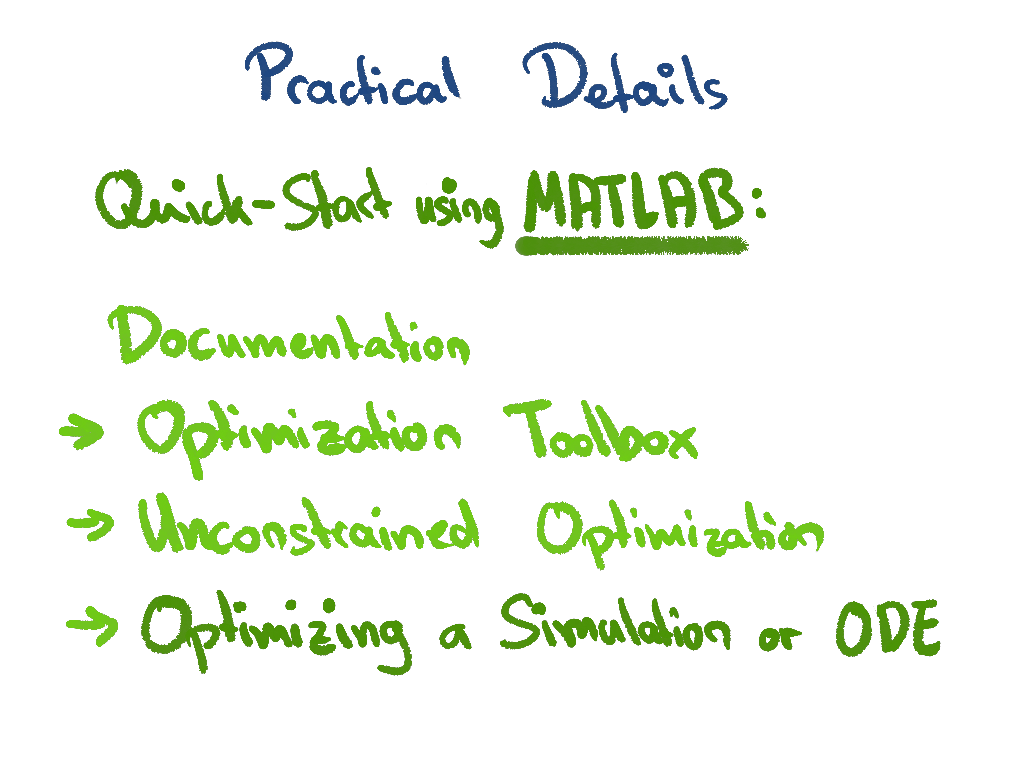 Practical Details
Quick-Start using MATLAB:
Documentation
→ Optimization Toolbox
→ Unconstrained Optimization
→ Optimizing a Simulation or ODE